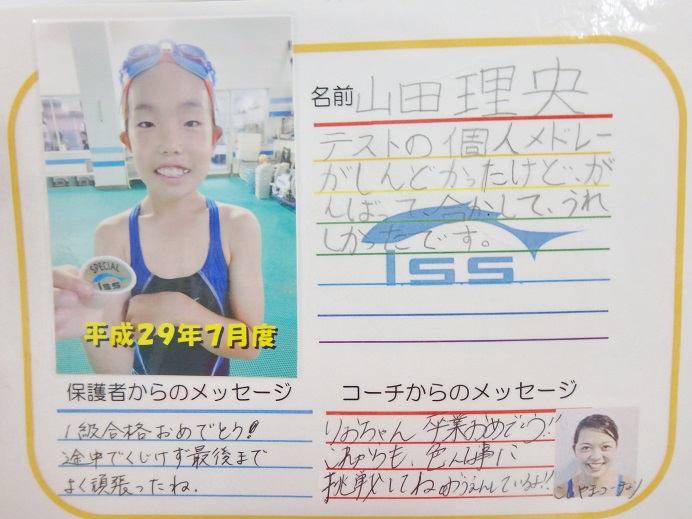 名前 山田理央
テストの個人メドレー
がしんどかったけど、が
んばって、合かくして、うれ
しかったです。
iss
SPECIAL
iss
平成29年7月度
保護者からのメッセージ
1級合格おめでとう!
途中でくじけず最後まで
よく頑張ったね.
コーチからのメッセージ
りおちゃん 卒業おめでとう!!
これからも、色んな事に
挑戦してね おうえんしているよ!!